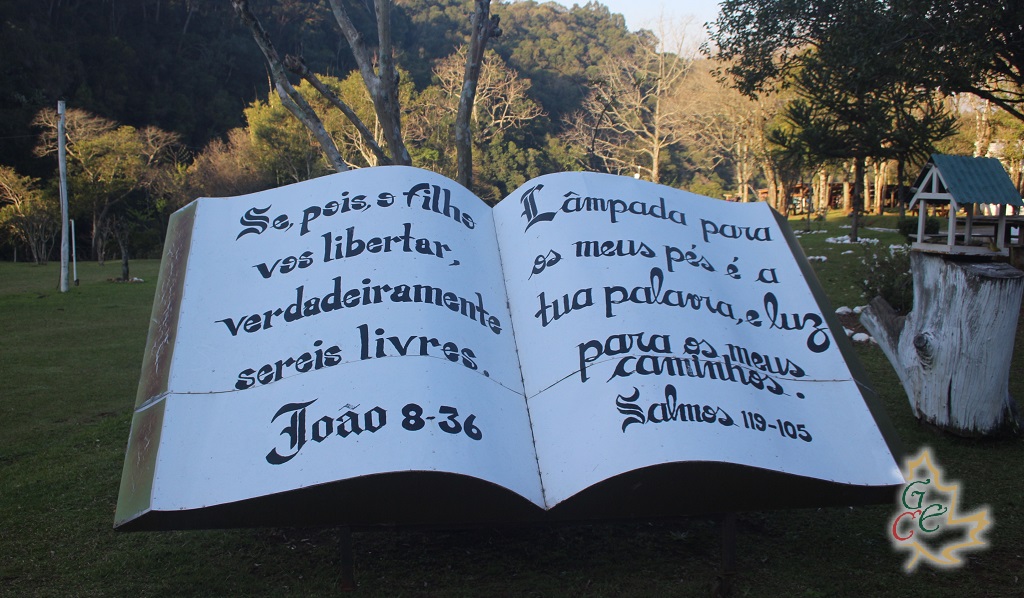 Se, pois, o filho
vos libertar,
verdadeiramente
sereis livres.
João 8-36
Lâmpada para
os meus pés é a
tua palavra, e luz
para os meus
caminhos.
Salmos 119-105
GCE